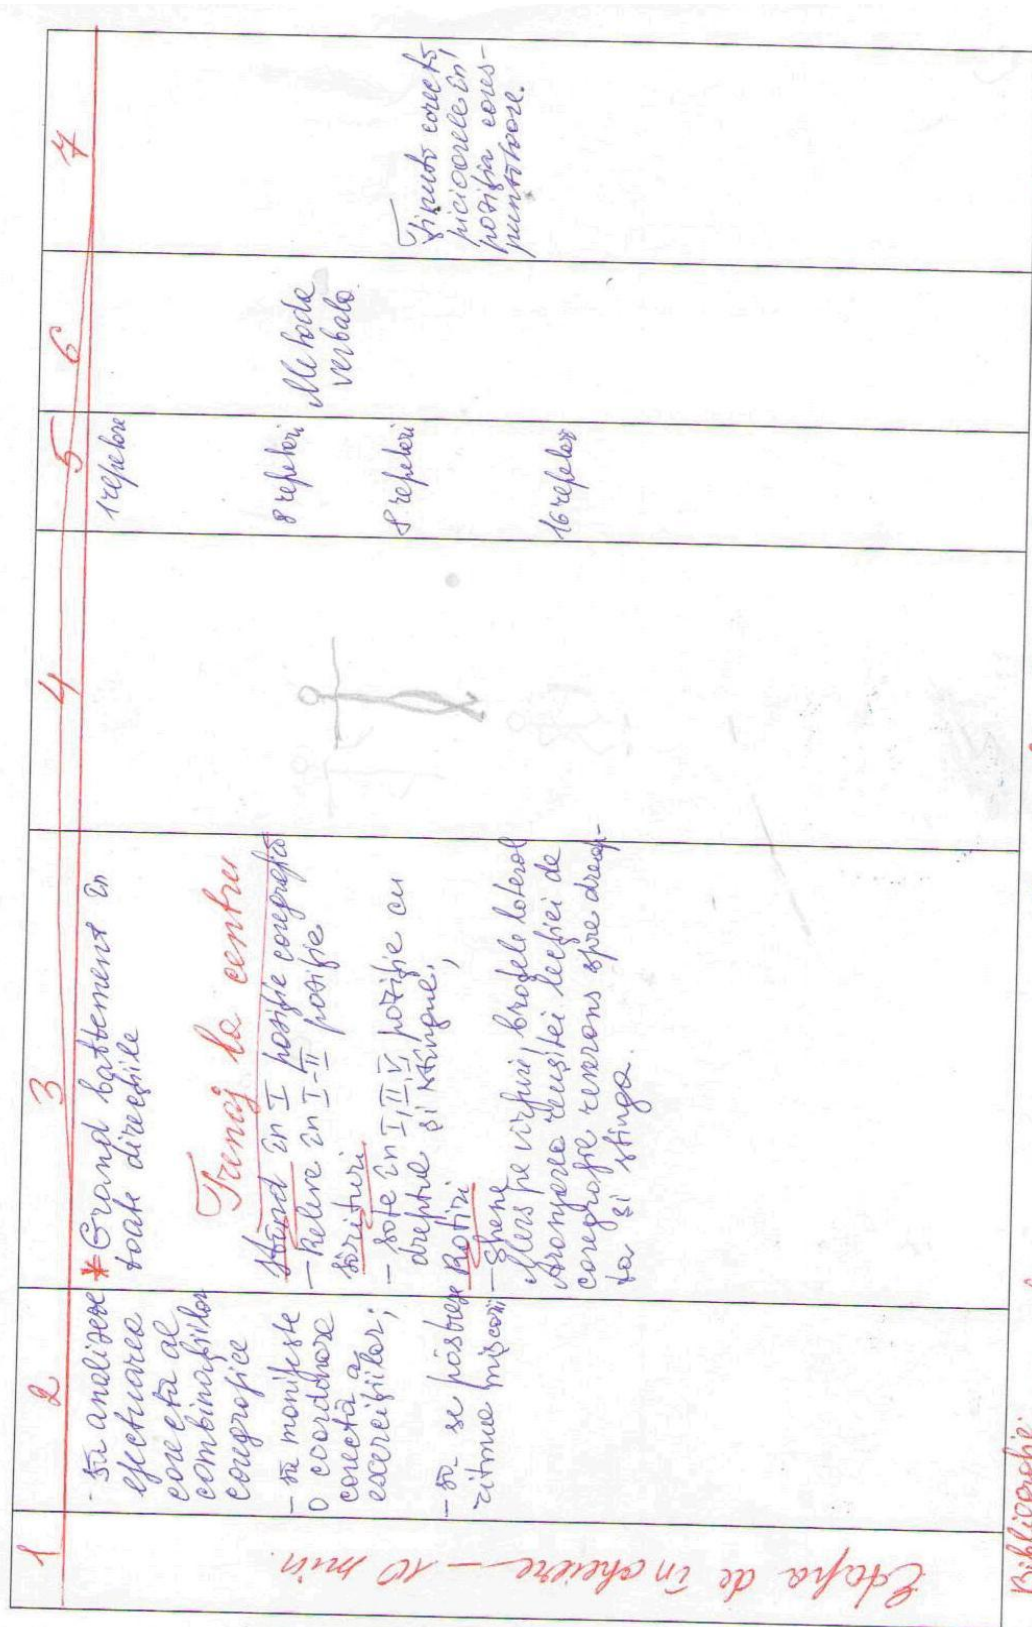 1 2 3 4 5 6 7
Etapa de încheiere – 10 min.
- să analizeze
efectuarea
corectă al
combinațiilor
coregrafice
- să manifeste
o coordonare
corectă a
exercițiilor;
- să se păstreze
ritmul mișcării
* Grand battement în
toate direcțiile
Trenaj la centru
Stând în I poziție coregrafică
- Releve în I-II poziție
Sărituri
- Sote în I, II, V poziție cu
dreptul și stîngul,
Rotiri
- Shene
Mers pe vîrfuri, brațele lateral
Aranjarea ținutei lecției de
coregrafie reverans spre dreap-
ta și stînga.
1 repetare
8 repetări
8 repetări
16 repetări
Metoda
verbală.
Ținută corectă
picioarele în
poziția cores-
punzătoare.
Bibliografie: